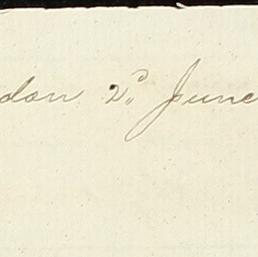 don 2d. June